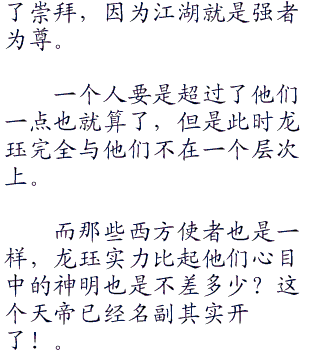 了崇拜，因为江湖就是强者
为尊。
一个人要是超过了他们
一点也就算了，但是此时龙
珏完全与他们不在一个层次
上。
而那些西方使者也是一
样，龙珏实力比起他们心目
中的神明也是不差多少？这
个天帝已经名副其实开
了！。